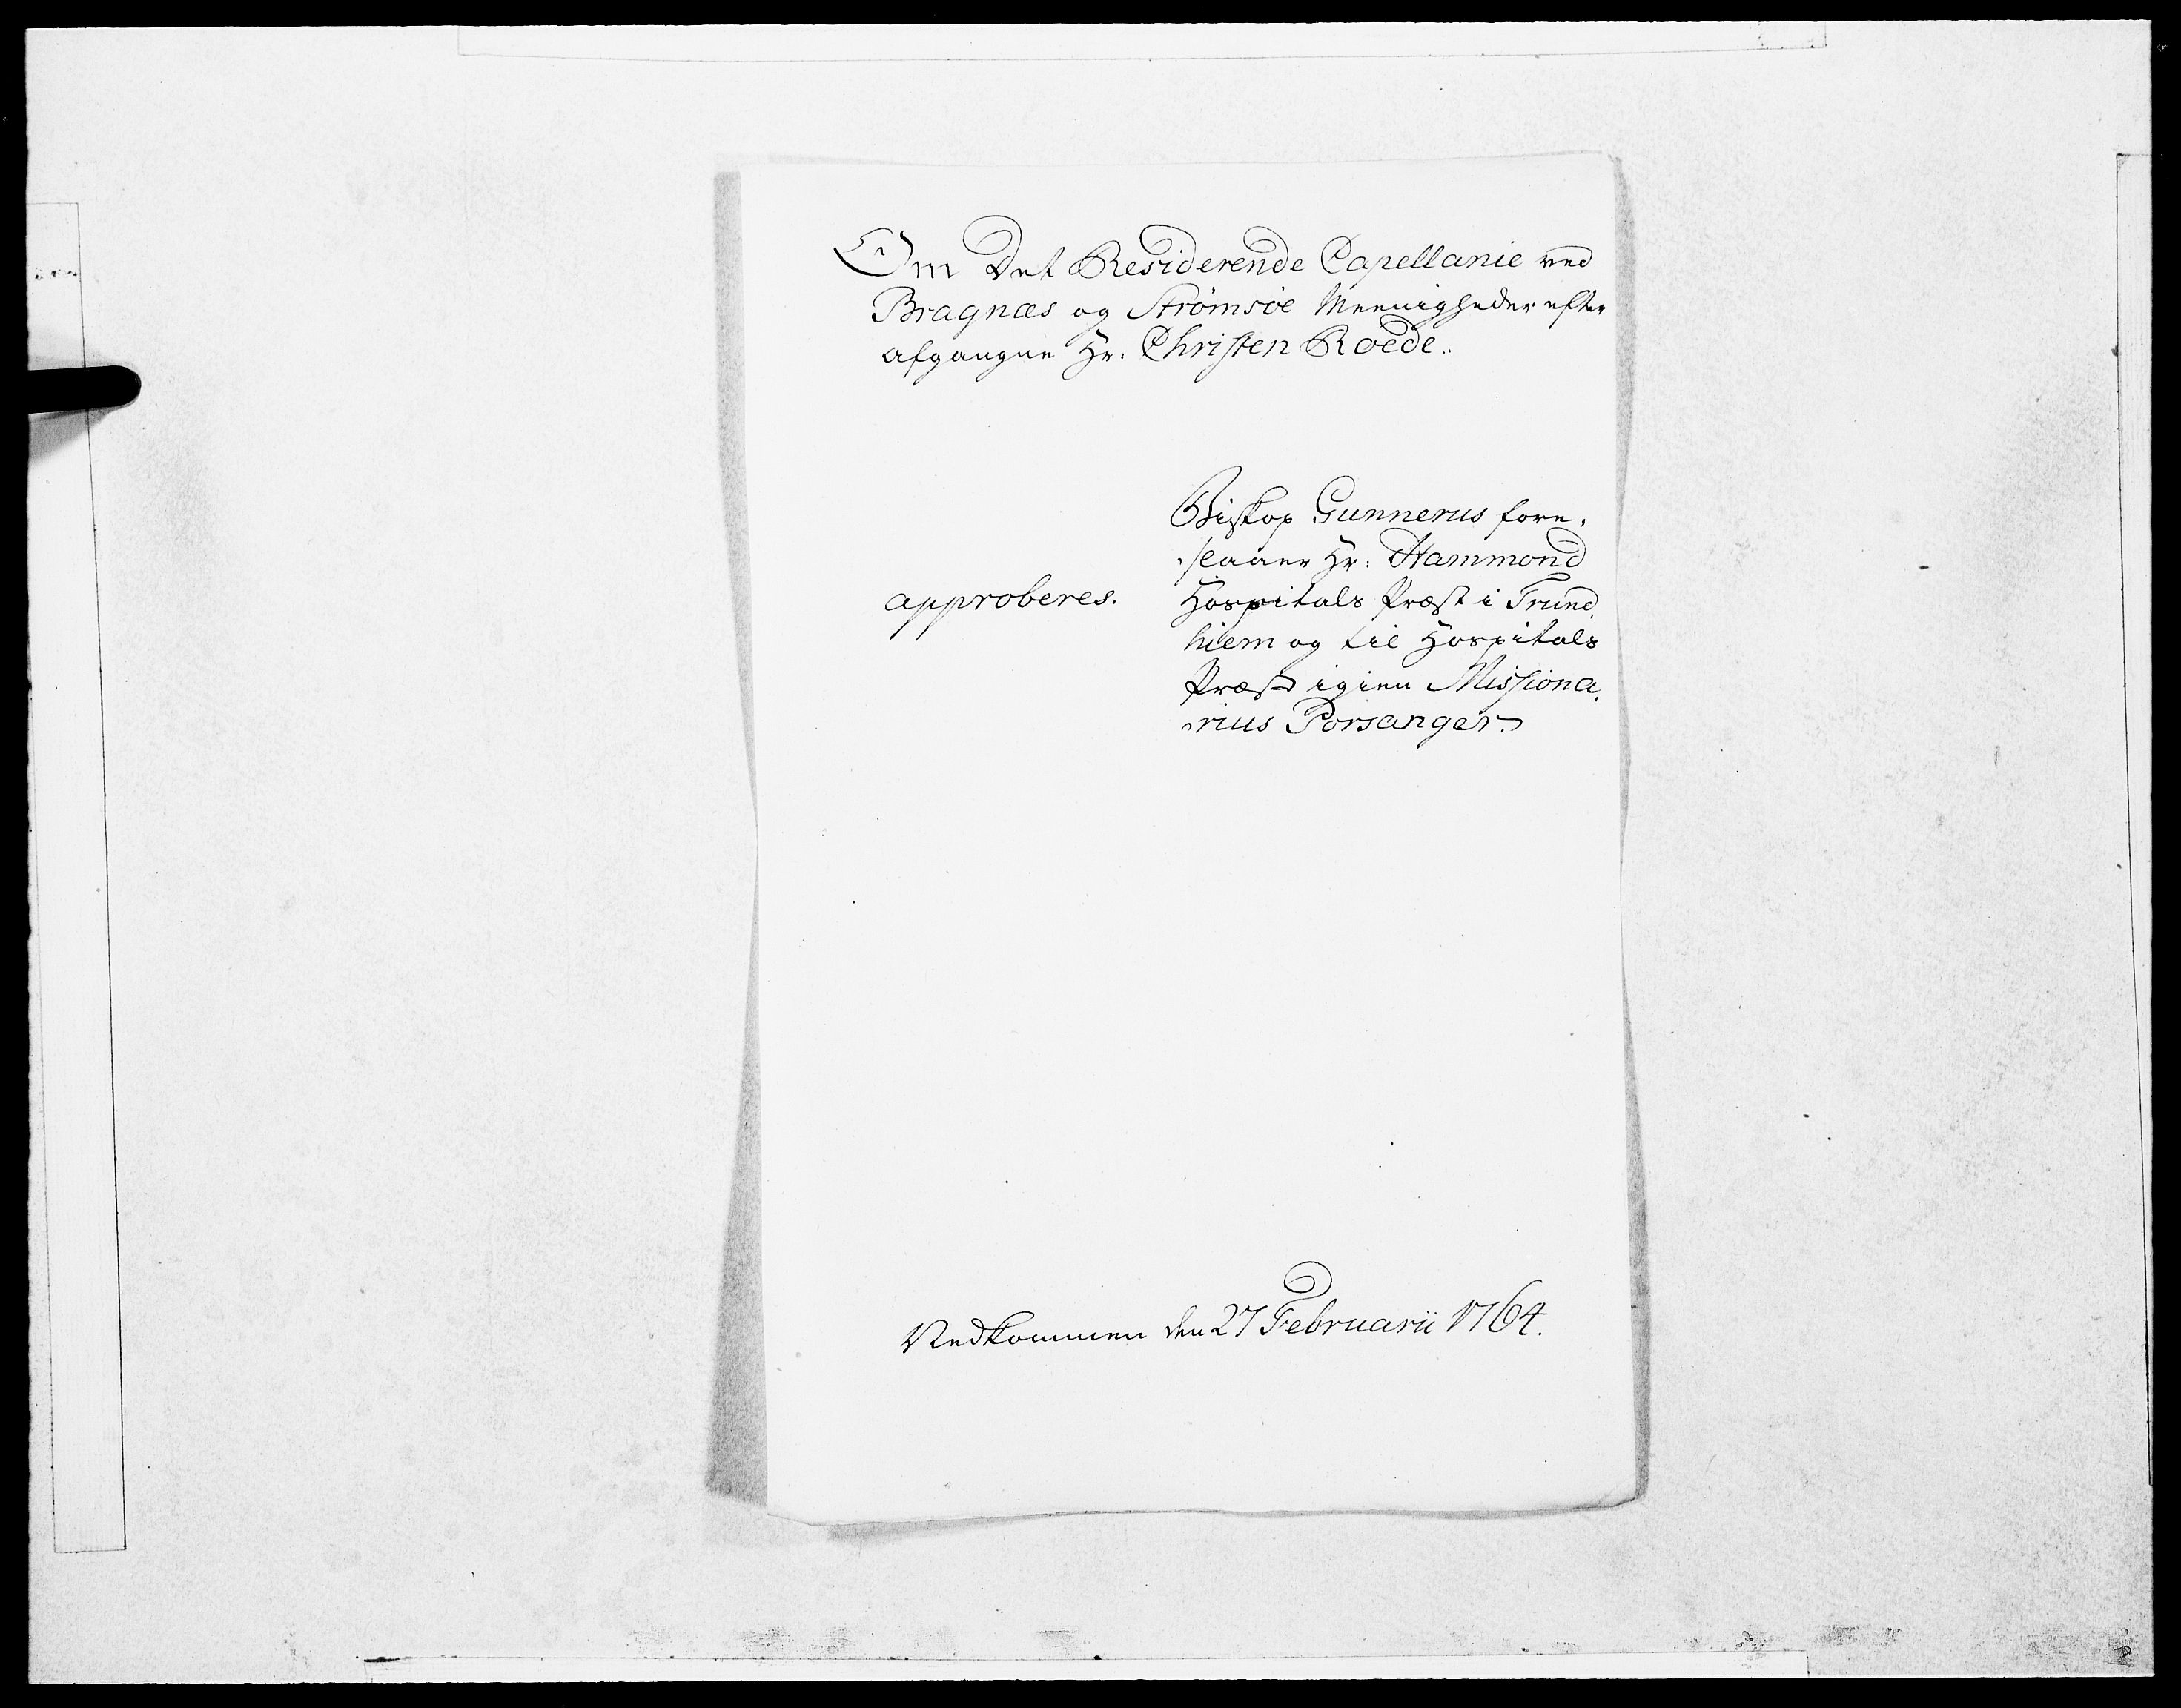 Om Det Residerende Capellanie ved
Bragnæs og Strømsøe Meenigheder efter
afgangne Hr: Christen Roede.
Biskop Gunnerus fore-
-slaaer Hr: Hammond
approberes. Hospitals Præst i Trund
hiem og til Hospitals
Præst igien Missiona-
-rius Porsanger.
Nedkommen den 27 Februarii 1764.